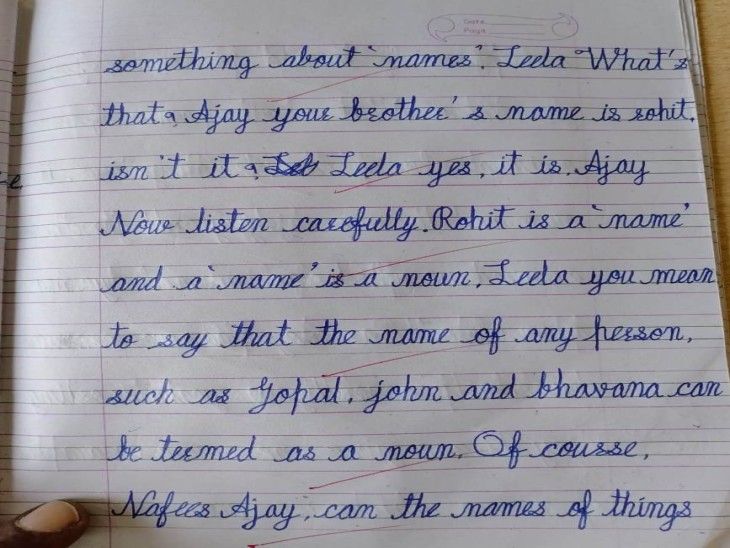 Date
Page
something about 'names'. Leela What's
that? Ajay your brother's name is rohit.
isn't it? Leela yes, it is. Ajay
Now listen carefully. Rohit is a 'name'
and a 'name' is a noun. Leela you mean
to say that the name of any person,
such as Gopal, john and bhavana can
be termed as a noun. Of course,
Nafees Ajay, can the names of things